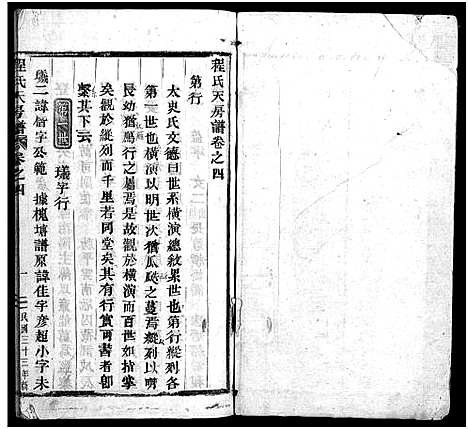 程氏天房譜卷之四
第行
太史氏文德曰世系橫演總敘累世也第行縱列各
第一世也橫演以明世次猶瓜瓞之蔓焉縱列以嘶
長幼猶鴈行之屬焉是故觀於橫演而百世如指掌
矣觀於縱列而千里若同堂矣其有行實可書者卽
繫其下云
璣字行
璣二諱偕字公範 據槐塘譜原諱佳字彥超小字未
程氏天房譜
卷之四
一
民國三十三年修